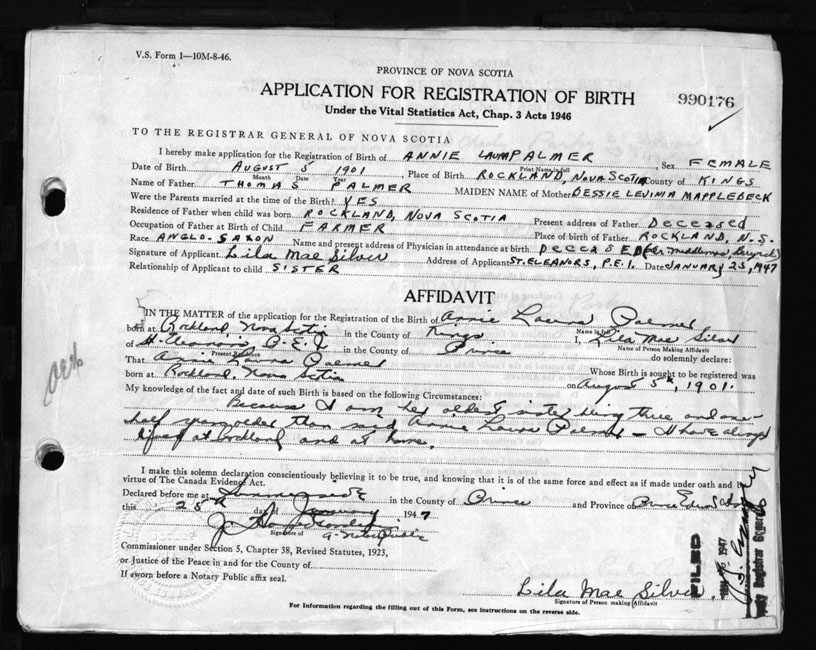 V.S. Form 1—10M-8-46.
PROVINCE OF NOVA SCOTIA
APPLICATION FOR REGISTRATION OF BIRTH
990176
Under the Vital Statistics Act, Chap. 3 Acts 1946
TO THE REGISTRAR GENERAL OF NOVA SCOTIA
I hereby make application for the Registration of Birth of ANNIE PALMER Sex FEMALE
Print Name in full
Date of Birth AUGUST 5 1901, Place of Birth ROCKLAND, NOVA SCOTIA County of KINGS
Month Date Year
Name of Father THOMAS PALMER MAIDEN NAME of Mother BESSIE LEVINA MAPPLEBECK
Were the Parents married at the time of the Birth? YES
Residence of Father when child was born ROCKLAND, NOVA SCOTIA Present address of Father DECEASED
Occupation of Father at Birth of Child FARMER Place of birth of Father ROCKLAND, N.S.
Race ANGLO-SAXON Name and present address of Physician in attendance at birth DECEASED
Signature of Applicant Lila Mae Silver Address of Applicant ST. ELEANORS, P.E.I. Date JANUARY 25, 1947
Relationship of Applicant to child SISTER
AFFIDAVIT
IN THE MATTER of the application of the Registration of the Birth of Annie Laura Palmer
Name in full
born at Rockland, Nova Scotia in the County of Kings I, Lila Mae Silver
Name of Person Making Affidavit
of St. Eleanors P.E.I. in the County of Prince do solemnly declare:
Present Residence
That Annie Laura Palmer Whose Birth is sought to be registered was
born at Rockland, Nova Scotia on August 5th, 1901.
My knowledge of the fact and date of such Birth is based on the following Circumstances:
Because I am her oldest sister being three and one-
half years older than said Annie Laura Palmer — I have always
lived at Rockland and at home.
I make this solemn declaration conscientiously believing it to be true, and knowing that it is of the same force and effect as if made under oath and by
virtue of The Canada Evidence Act.
Declared before me at Summerside in the County of Prince and Province of Prince Edward Island
this 25th day of January 1947
Signature of a Notary Public
Commissioner under Section 5, Chapter 38, Revised Statutes, 1923,
or Justice of the Peace in and for the County of
If sworn before a Notary Public affix seal.
Lila Mae Silver
Signature of Person making Affidavit
For Information regarding the filling out of this Form, see instructions on the reverse side.
FILED
1947
Deputy Registrar General